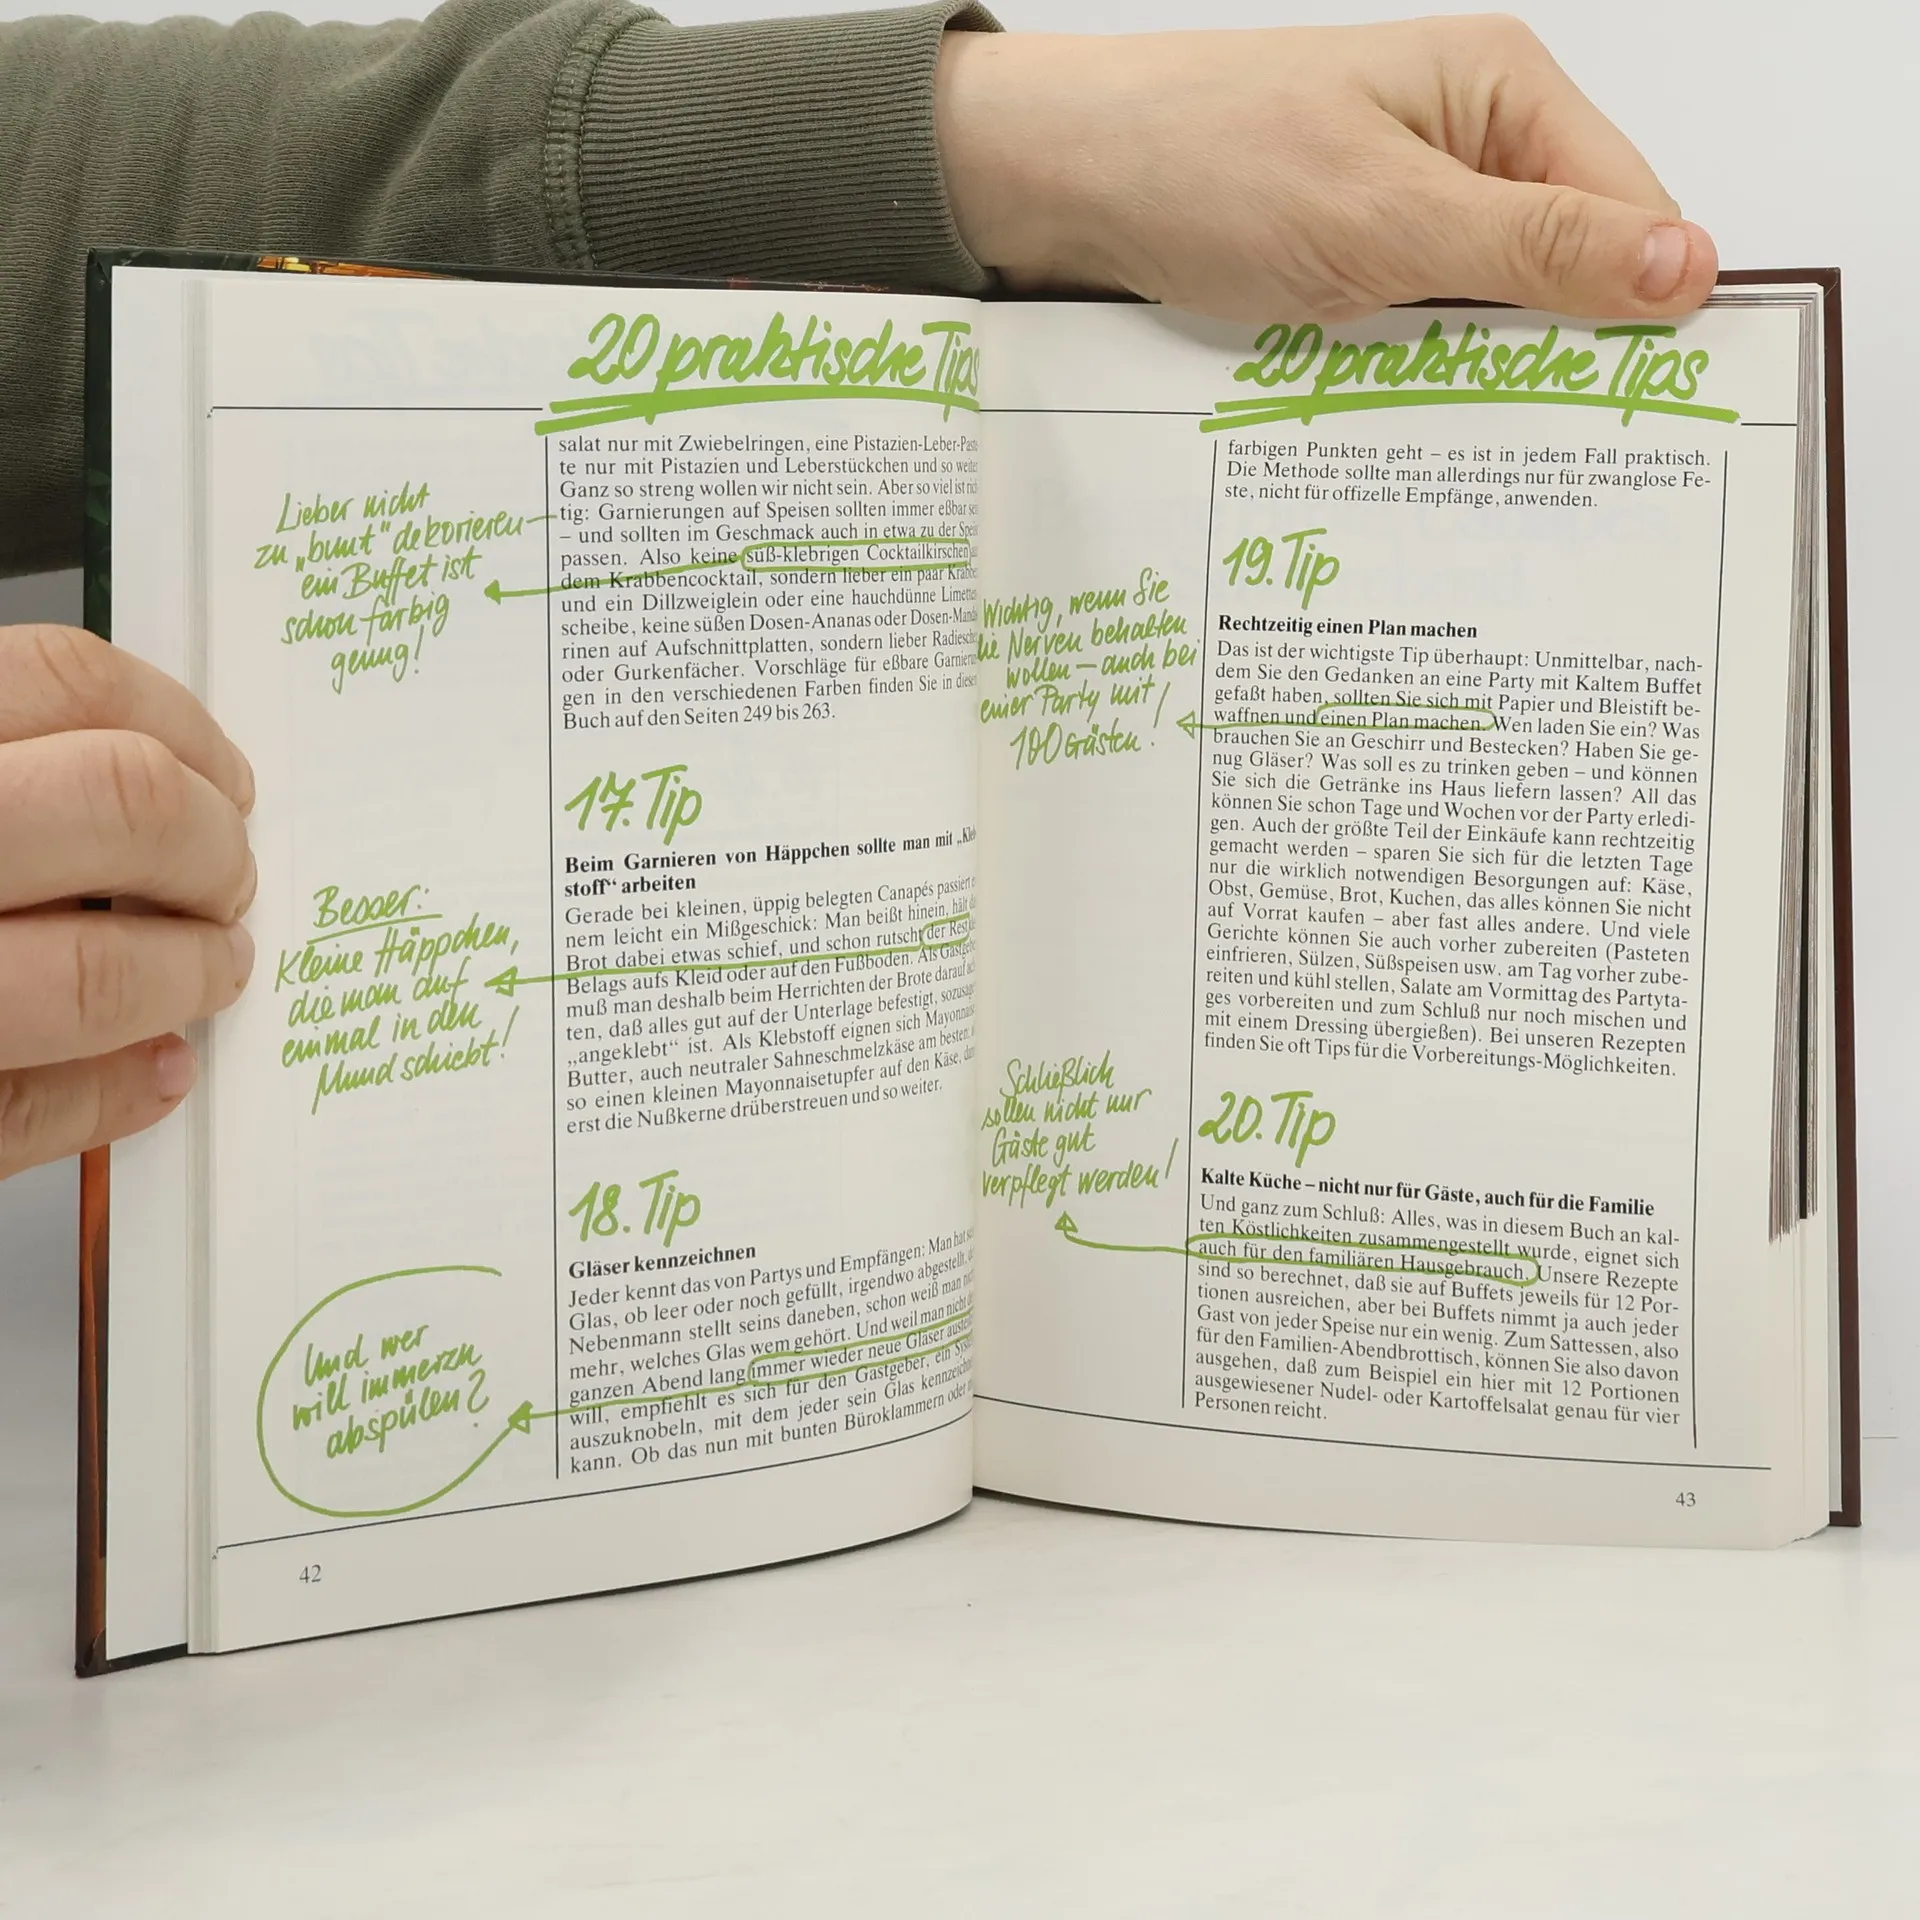 20 praktische Tips
salat nur mit Zwiebelringen, eine Pistazien-Leber-Pas
te nur mit Pistazien und Leberstückchen und so weiter
Ganz so streng wollen wir nicht sein. Aber so viel ist
tig: Garnierungen auf Speisen sollten immer eßbar
– und sollten im Geschmack auch in etwa zu der
passen. Also keine süß-klebrigen Cocktailkirschen
dem Krabbencocktail, sondern lieber ein paar
und ein Dillzweiglein oder eine hauchdünne
scheibe, keine süßen Dosen-Ananas oder Dosen-
rinen auf Aufschnittplatten, sondern lieber
oder Gurkenfächer. Vorschläge für eßbare
gen in den verschiedenen Farben finden Sie in
Buch auf den Seiten 249 bis 263.
Lieber nicht
zu „bunt“ dekorieren
ein Buffet ist
schon farbig
genug!
17. Tip
Beim Garnieren von Häppchen sollte man mit
stoff“ arbeiten
Gerade bei kleinen, üppig belegten Canapés passiert
nem leicht ein Mißgeschick: Man beißt hinein, hält
Brot dabei etwas schief, und schon rutscht der Rest
Belags aufs Kleid oder auf den Fußboden. Als
muß man deshalb beim Herrichten der Brote darauf
ten, daß alles gut auf der Unterlage befestigt,
„angeklebt“ ist. Als Klebstoff eignen sich
Butter, auch neutraler Sahneschmelzkäse am besten:
so einen kleinen Mayonnaisetupfer auf den Käse,
erst die Nußkerne drüberstreuen und so weiter.
Besser:
Kleine Häppchen,
die man auf
einmal in den
Mund schiebt!
18. Tip
Gläser kennzeichnen
Jeder kennt das von Partys und Empfängen: Man hat
Glas, ob leer oder noch gefüllt, irgendwo abgestellt,
Nebenmann stellt seins daneben, schon weiß man
mehr, welches Glas wem gehört. Und weil man nicht
ganzen Abend lang immer wieder neue Gläser
will, empfiehlt es sich für den Gastgeber, ein
auszuknobeln, mit dem jeder sein Glas
kann. Ob das nun mit bunten Büroklammern oder
Und wer
will immerzu
abspülen?
42
20 praktische Tips
farbigen Punkten geht – es ist in jedem Fall praktisch.
Die Methode sollte man allerdings nur für zwanglose Fe-
ste, nicht für offizelle Empfänge, anwenden.
19. Tip
Rechtzeitig einen Plan machen
Das ist der wichtigste Tip überhaupt: Unmittelbar, nach-
dem Sie den Gedanken an eine Party mit Kaltem Buffet
gefaßt haben, sollten Sie sich mit Papier und Bleistift be-
waffnen und einen Plan machen. Wen laden Sie ein? Was
brauchen Sie an Geschirr und Bestecken? Haben Sie ge-
nug Gläser? Was soll es zu trinken geben – und können
Sie sich die Getränke ins Haus liefern lassen? All das
können Sie schon Tage und Wochen vor der Party erledi-
gen. Auch der größte Teil der Einkäufe kann rechtzeitig
gemacht werden – sparen Sie sich für die letzten Tage
nur die wirklich notwendigen Besorgungen auf: Käse,
Obst, Gemüse, Brot, Kuchen, das alles können Sie nicht
auf Vorrat kaufen – aber fast alles andere. Und viele
Gerichte können Sie auch vorher zubereiten (Pasteten
einfrieren, Sülzen, Süßspeisen usw. am Tag vorher zube-
reiten und kühl stellen, Salate am Vormittag des Partyta-
ges vorbereiten und zum Schluß nur noch mischen und
mit einem Dressing übergießen). Bei unseren Rezepten
finden Sie oft Tips für die Vorbereitungs-Möglichkeiten.
Wichtig, wenn Sie
die Nerven behalten
wollen – auch bei
einer Party mit
100 Gästen!
20. Tip
Kalte Küche – nicht nur für Gäste, auch für die Familie
Und ganz zum Schluß: Alles, was in diesem Buch an kal-
ten Köstlichkeiten zusammengestellt wurde, eignet sich
auch für den familiären Hausgebrauch. Unsere Rezepte
sind so berechnet, daß sie auf Buffets jeweils für 12 Por-
tionen ausreichen, aber bei Buffets nimmt ja auch jeder
Gast von jeder Speise nur ein wenig. Zum Sattessen, also
für den Familien-Abendbrottisch, können Sie also davon
ausgehen, daß zum Beispiel ein hier mit 12 Portionen
ausgewiesener Nudel- oder Kartoffelsalat genau für vier
Personen reicht.
Schließlich
sollen nicht nur
Gäste gut
verpflegt werden!
43